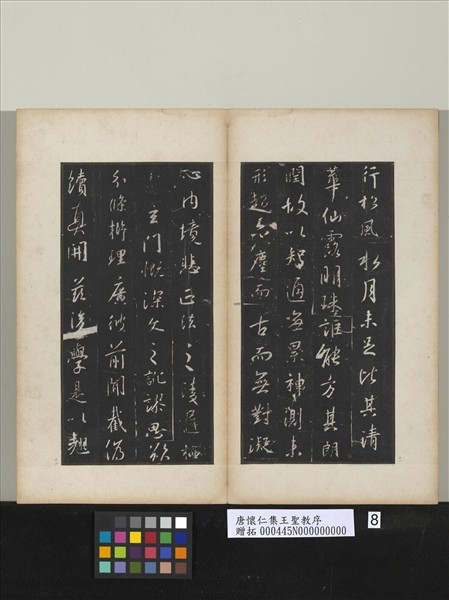 行松風水月未足比其清
華仙露明珠詎能方其朗
潤故以智通無累神測未
形超六塵而古而無對凝
心內境悲正法之陵遲栖
玄門慨深文之訛謬思欲
分條析理廣彼前聞截偽
續真開茲後學是以翹
唐懷仁集王聖教序
贈拓 000445N000000000
8